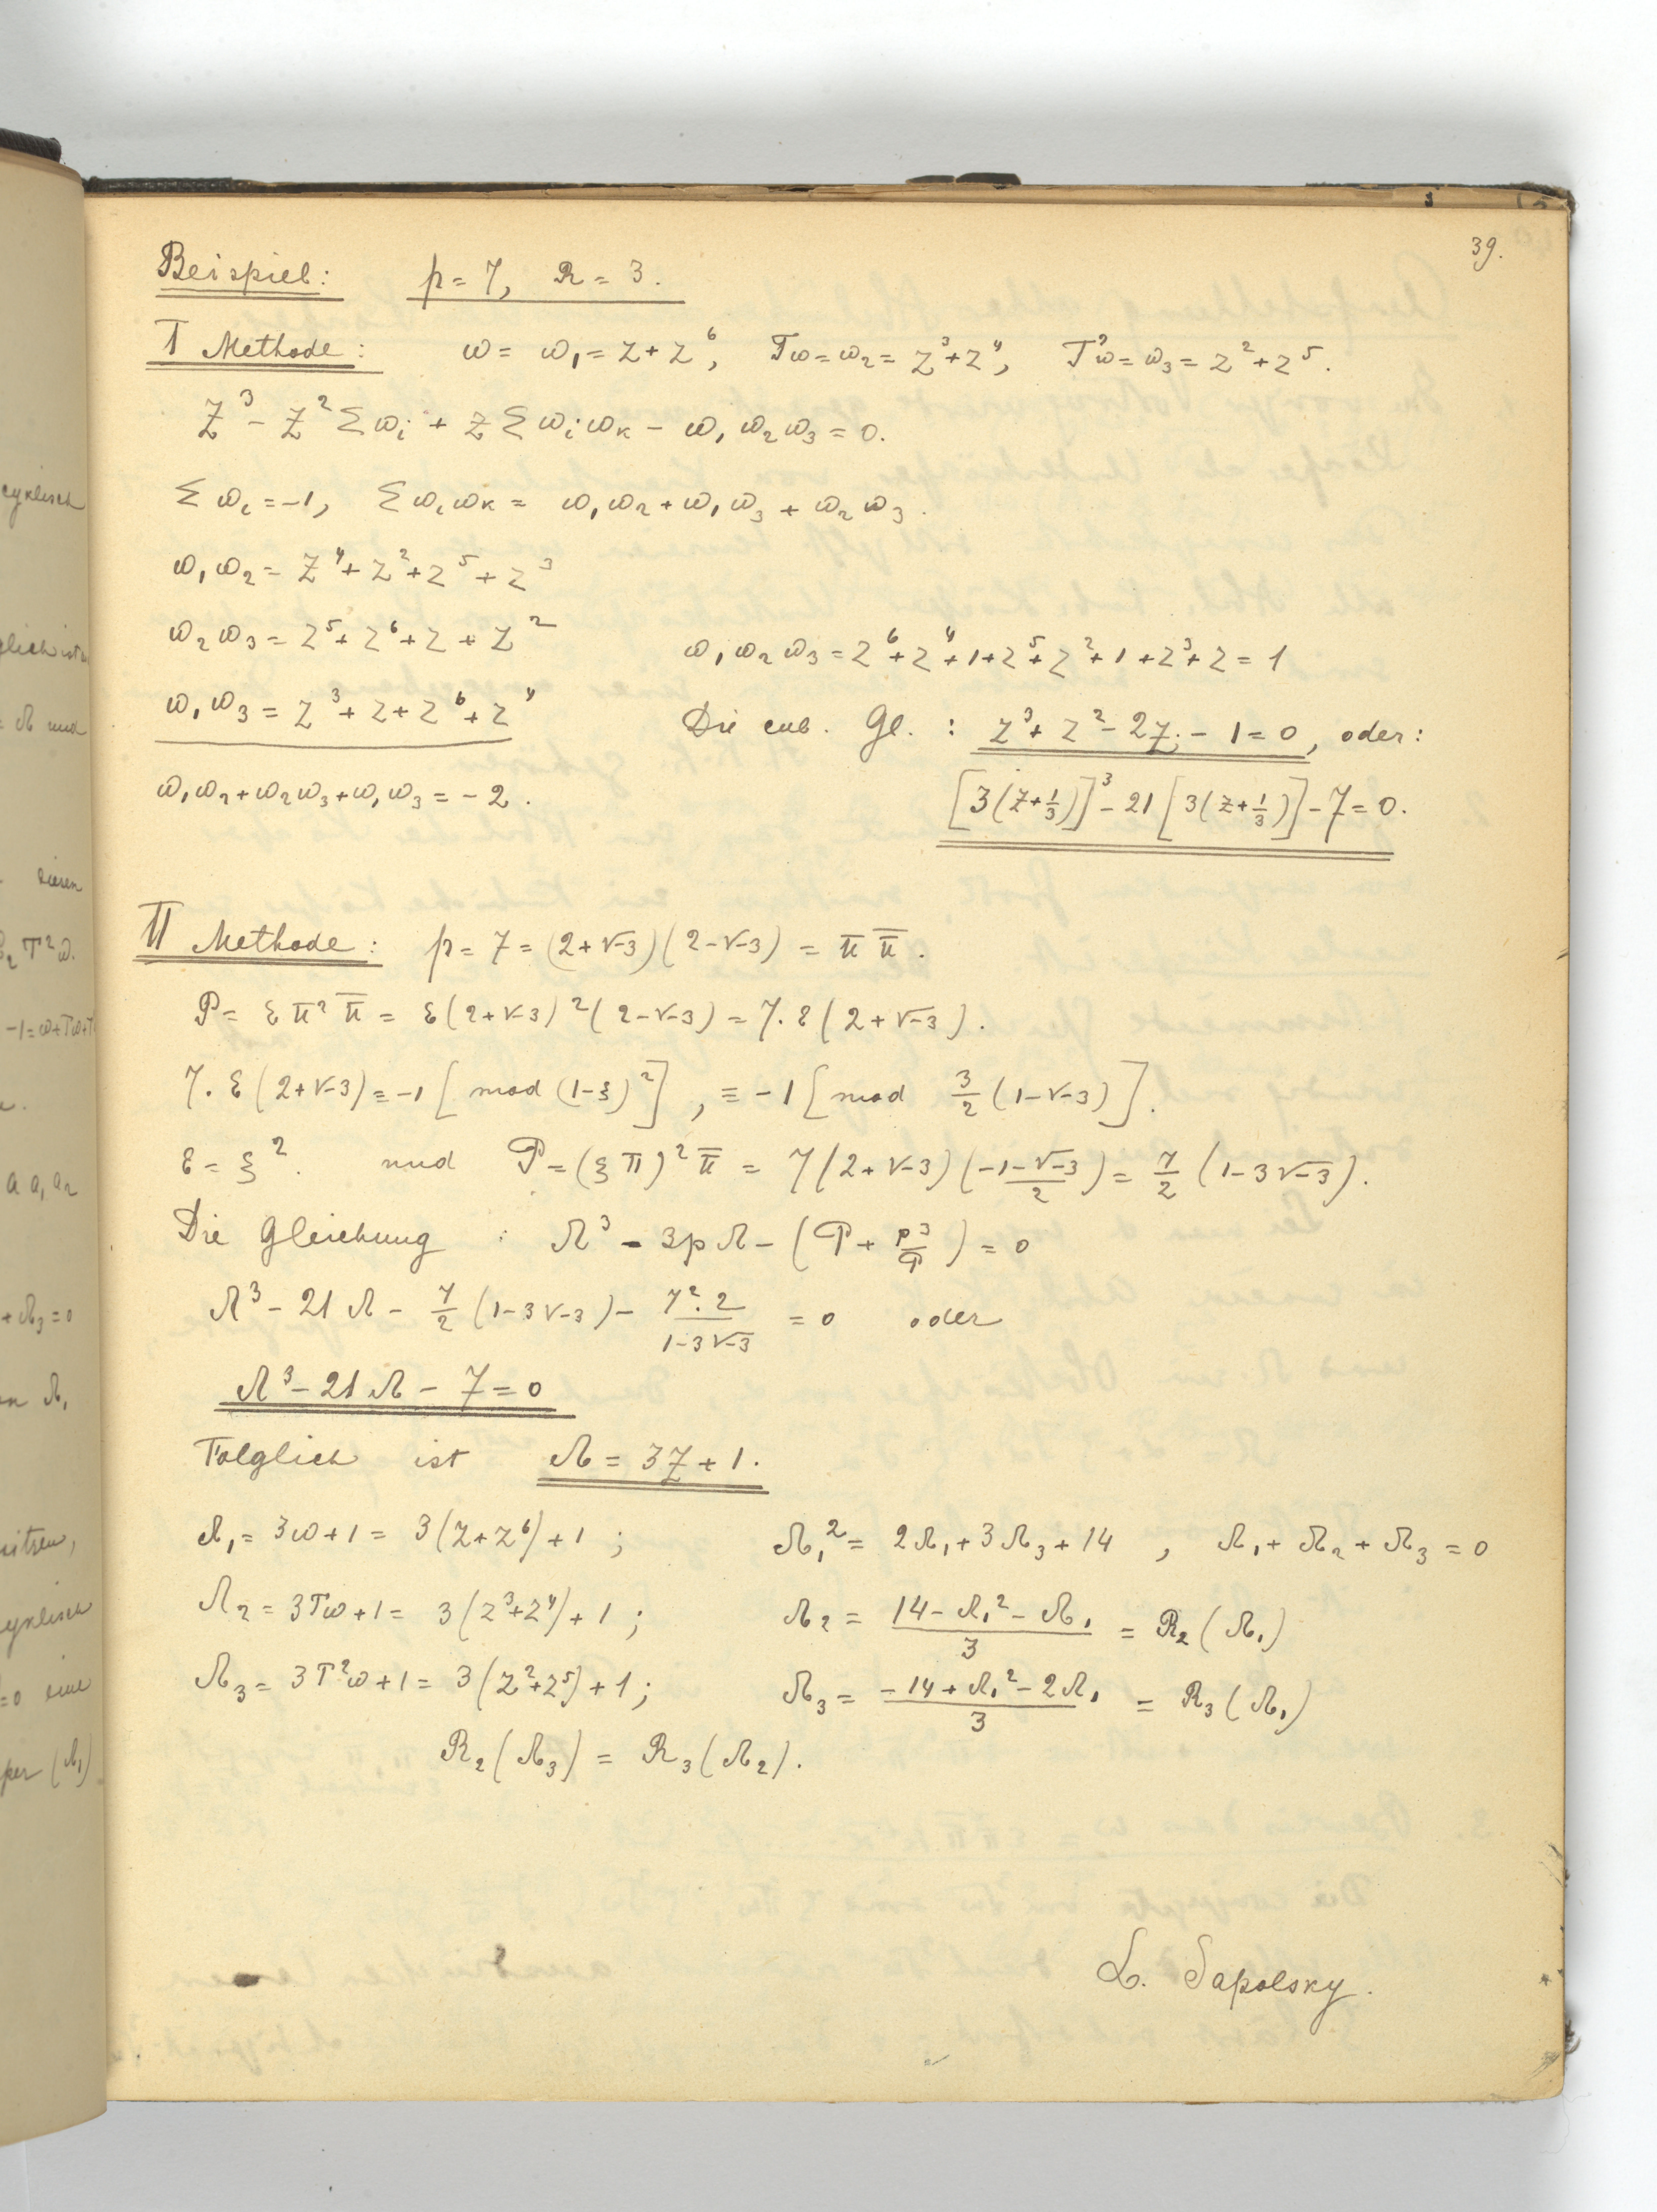 39.
Beispiel: p = 7, R = 3.
I Methode: ω = ω₁ = z + z⁶, Tω = ω₂ = z³ + z⁴, T²ω = ω₃ = z² + z⁵.
Z³ - Z² Σ ωᵢ + Z Σ ωᵢ ωₖ - ω₁ ω₂ ω₃ = 0.
Σ ωᵢ = -1, Σ ωᵢ ωₖ = ω₁ω₂ + ω₁ω₃ + ω₂ω₃.
ω₁ω₂ = z⁴ + z² + z⁵ + z³
ω₂ω₃ = z⁵ + z⁶ + z + z²
ω₁ω₃ = z³ + z + z⁶ + z⁴
ω₁ω₂ + ω₂ω₃ + ω₁ω₃ = -2.
ω₁ω₂ω₃ = z⁶ + z⁴ + 1 + z⁵ + z² + 1 + z³ + z = 1
Die cub. Gl.: Z³ + Z² - 2Z - 1 = 0, oder:
[3(Z + 1/3)]³ - 21 [3(Z + 1/3)] - 7 = 0.
II Methode: p = 7 = (2 + √-3)(2 - √-3) = π π̅.
P = ε π² π̅ = ε(2 + √-3)²(2 - √-3) = 7. ε(2 + √-3).
7. ε(2 + √-3) ≡ -1 [mod (1-ξ)²], ≡ -1 [mod 3/2 (1 - √-3)].
ε = ξ². und P = (ξπ)² π̅ = 7(2 + √-3)((-1 - √-3)/2) = 7/2 (1 - 3√-3).
Die Gleichung: Λ³ - 3pΛ - (P + p³/P) = 0
Λ³ - 21Λ - 7/2 (1 - 3√-3) - (7². 2)/(1 - 3√-3) = 0 oder
Λ³ - 21Λ - 7 = 0
Folglich ist Λ = 3Z + 1.
Λ₁ = 3ω + 1 = 3(z + z⁶) + 1; Λ₁² = 2Λ₁ + 3Λ₃ + 14, Λ₁ + Λ₂ + Λ₃ = 0
Λ₂ = 3Tω + 1 = 3(z³ + z⁴) + 1; Λ₂ = (14 - Λ₁² - Λ₁)/3 = R₂(Λ₁)
Λ₃ = 3T²ω + 1 = 3(z² + z⁵) + 1; Λ₃ = (-14 + Λ₁² - 2Λ₁)/3 = R₃(Λ₁)
R₂(Λ₃) = R₃(Λ₂).
L. Sapolsky.